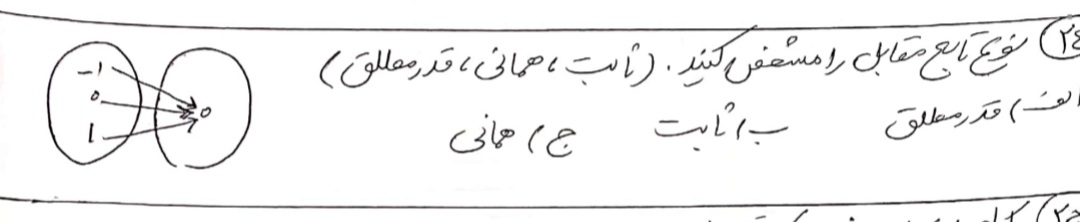 ۲۴) نوع تابع مقابل را مشخص کنید. (ثابت، همانی، قدرمطلق)
الف) قدرمطلق ب) ثابت ج) همانی
-۱
۰
۱
۰